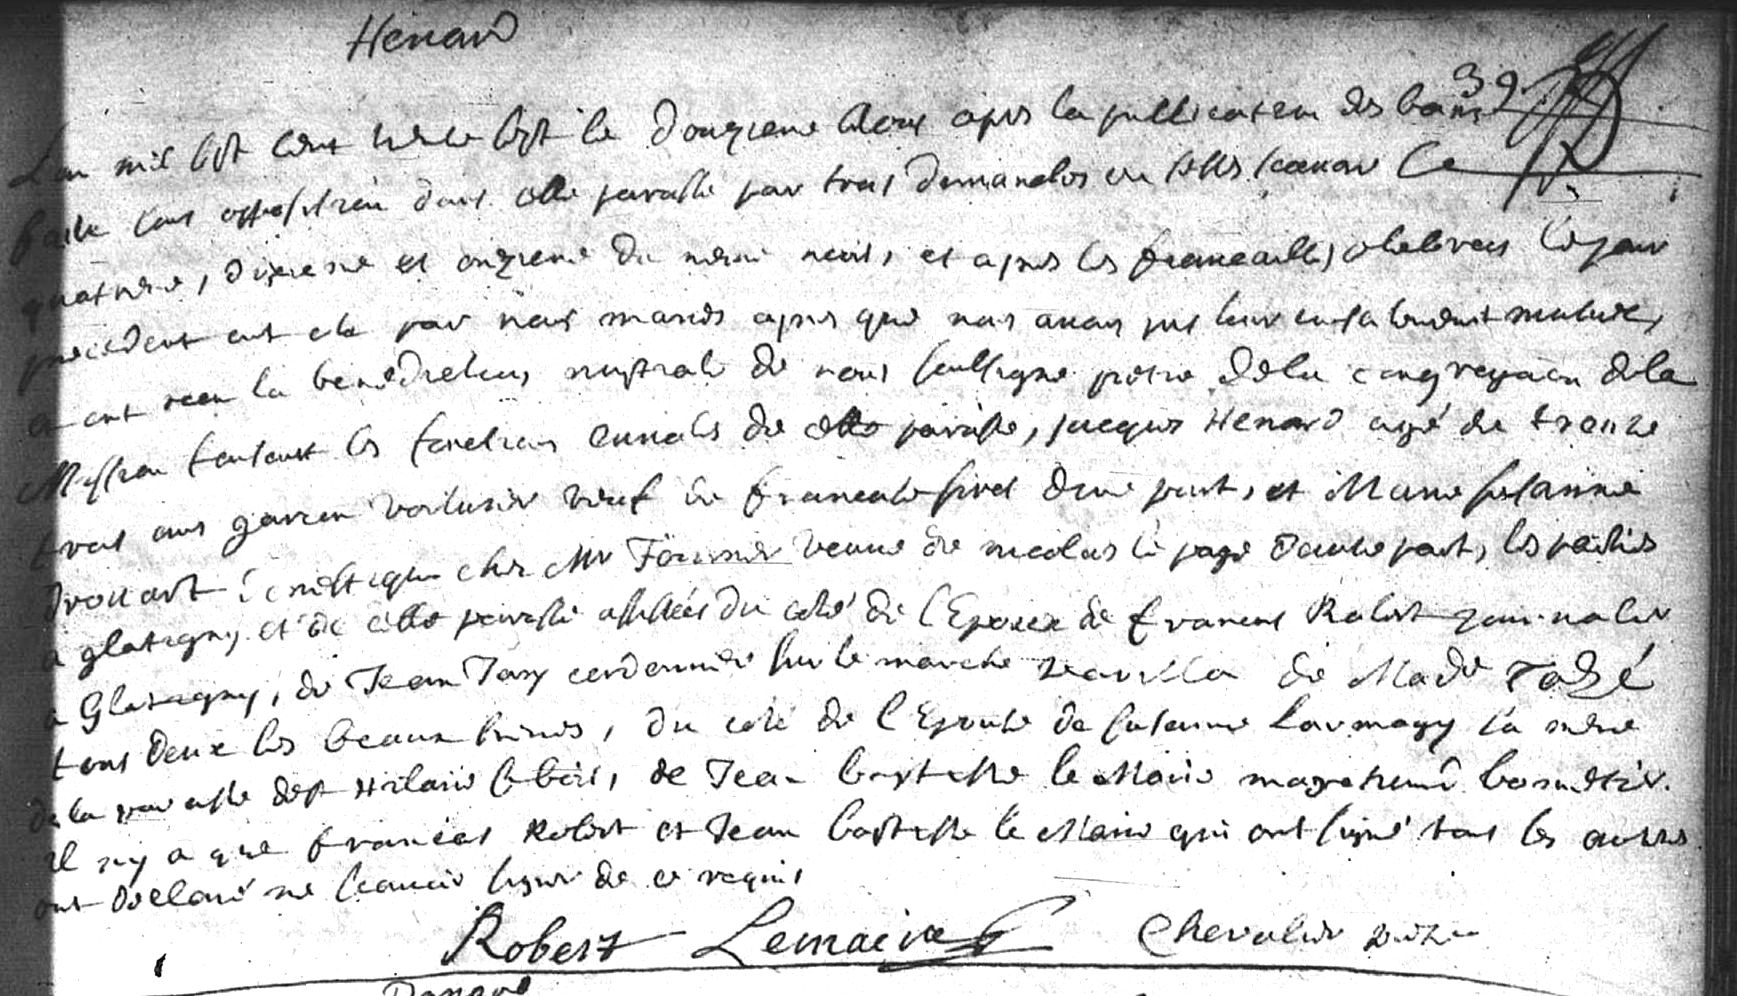 Henard
39
L'an mil sept cent trente sept le douzieme Aoust apres la publication des bans
faite sans opposition dans cette paroisse par trois dimanches ou festes scavoir le
quatrieme, dixieme et onzieme du meme mois, et apres les fiancailles celebrees le jour
precedent ont ete par nous mariés apres que nous avons pris leur consentement mutuel,
et ont receu la benediction nuptiale de nous soussigné pretre de la congregation de la
Mission faisant les fonctions curiales de cette paroisse, jacques Henard agé de trente
trois ans garcon voiturier veuf de francoise d'une part, et Marie susanne
Drouart domestique chez Mr Fournier veuve de nicolas le page d'autre part, les parties
a glatigny et de cette paroisse assistées du coté de l'Epoux de francois Robert journalier
a Glatigny, de Jean Tary cordonnier sur le marché de Made
tous deux ses beaux freres, du coté de l'Epouse de susanne sa mere
de la paroisse de st Hilaire, de Jean baptiste le Maire
il ny a que francois Robert et Jean baptiste le Maire qui ont signé tous les autres
ont declaré ne scavoir signer de ce requis
Robert Lemaire Chevalier